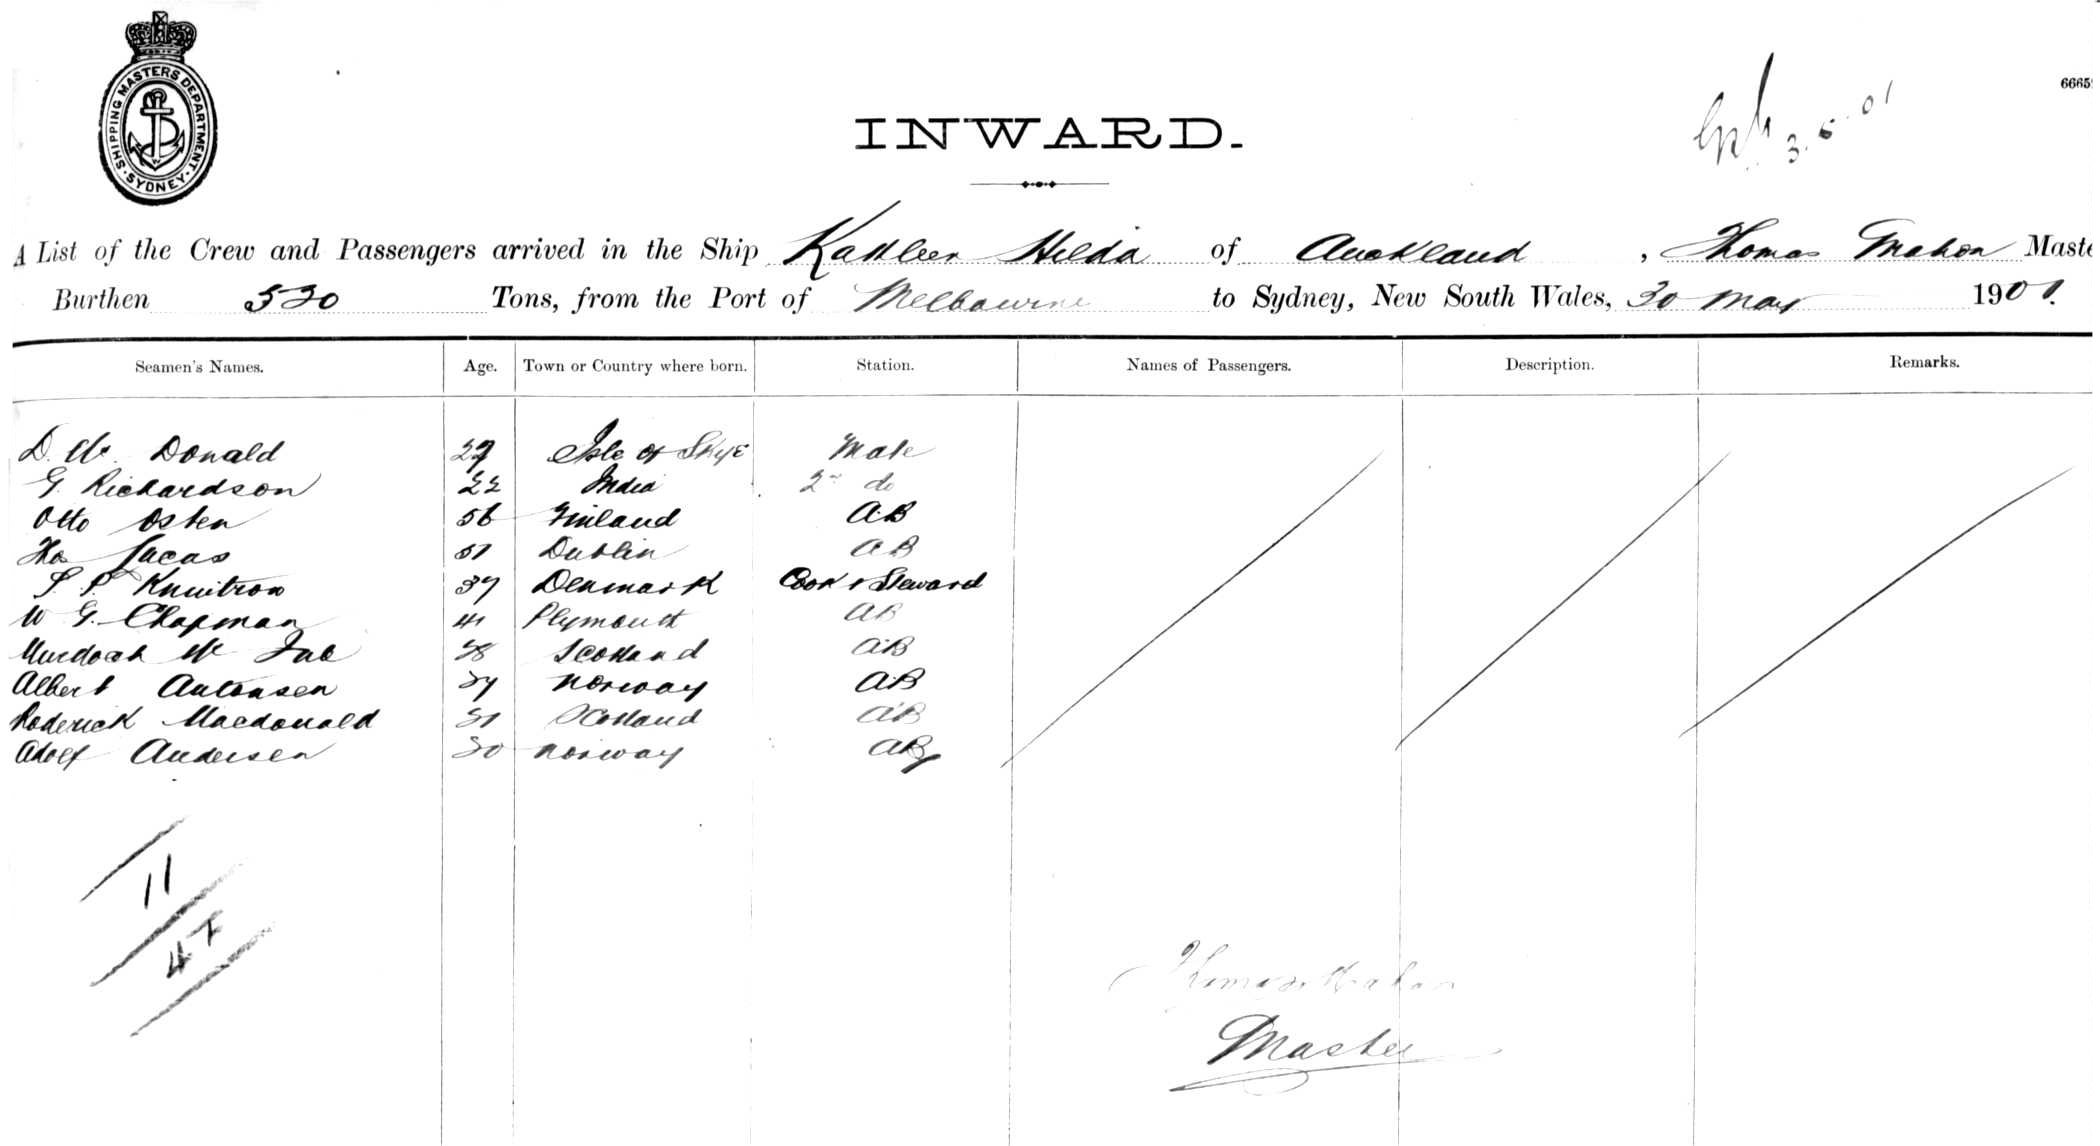 SHIPPING MASTERS DEPARTMENT
SYDNEY
6665
INWARD.
3.6.01
A List of the Crew and Passengers arrived in the Ship Kathleen Hilda of Auckland, Thomas Mahon Maste
Burthen 530 Tons, from the Port of Melbourne to Sydney, New South Wales, 30 May 1901.
Seamen's Names. Age. Town or Country where born. Station. Names of Passengers. Description. Remarks.
D. Mc Donald 29 Isle of Skye Mate
G. Richardson 22 India 2nd do
Otto Osten 56 Finland AB
Thos Lucas 51 Dublin AB
37 Denmark Cook & Steward
W G. Chapman 41 Plymouth AB
Murdoch Mc 38 Scotland AB
Albert Antonsen 34 Norway AB
Roderick Macdonald 31 Scotland AB
Adolf Andersen 30 Norway AB
11
47
Thomas Mahon
Master